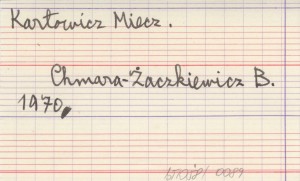 Kartowicz Miecz.
Chmara-Żaczkiewicz B.
1970,